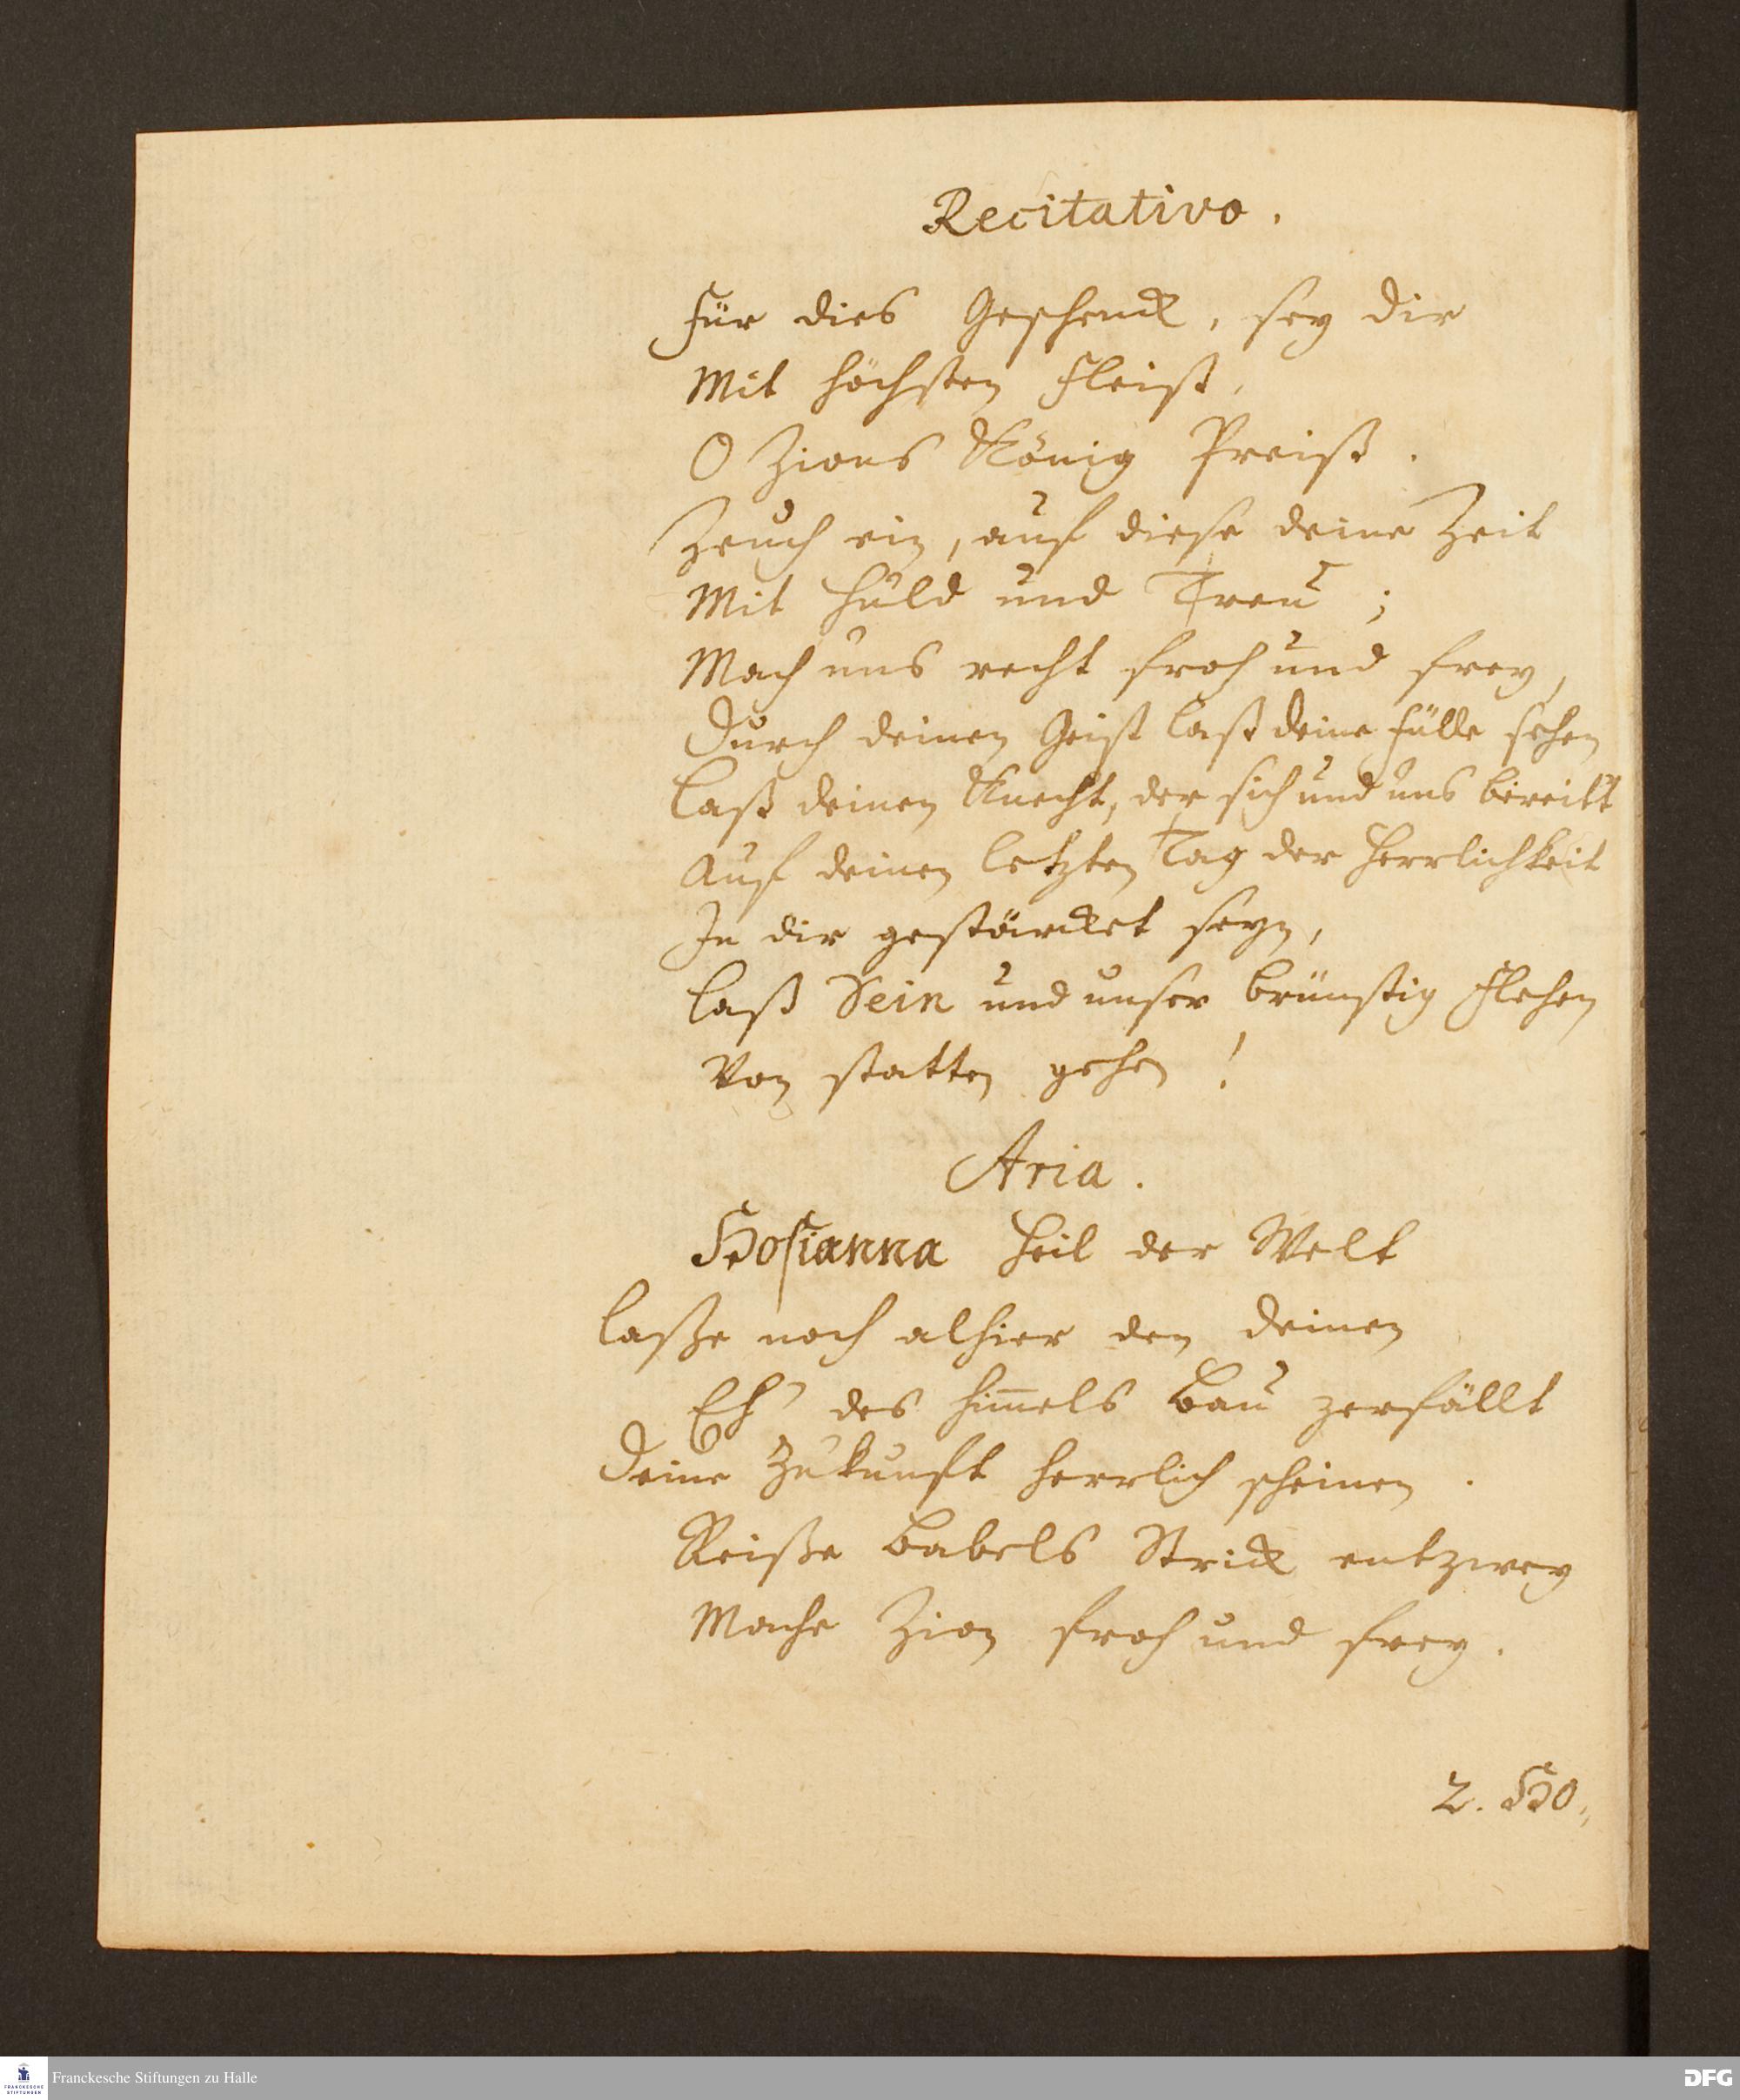 Recitativo.
Für dies Geschenck, sey dir
Mit höchsten Fleiß,
O Zions König Preiß.
Zeuch ein, auf diese deine Zeit
Mit Huld und Treu;
Mach uns recht froh und frey,
Durch deinen Geist laß deine Fülle sehen
Laß deinen Knecht, der sich und uns bereitt
Auf deinen letzten Tag der Herrlichkeit
In dir gestärcket seyn,
Laß Sein und unser brünstig Flehen
Von statten gehen!
Aria.
Hosianna Heil der Welt
Laße noch alhier den deinen
Eh' des Him̄els Bau zerfällt
Deine Zukunft herrlich scheinen.
Reiße Babels Strick entzwey
Mache Zion froh und frey.
2. Ho,,
Franckesche Stiftungen zu Halle
FRANCKESCHE
STIFTUNGEN
DFG